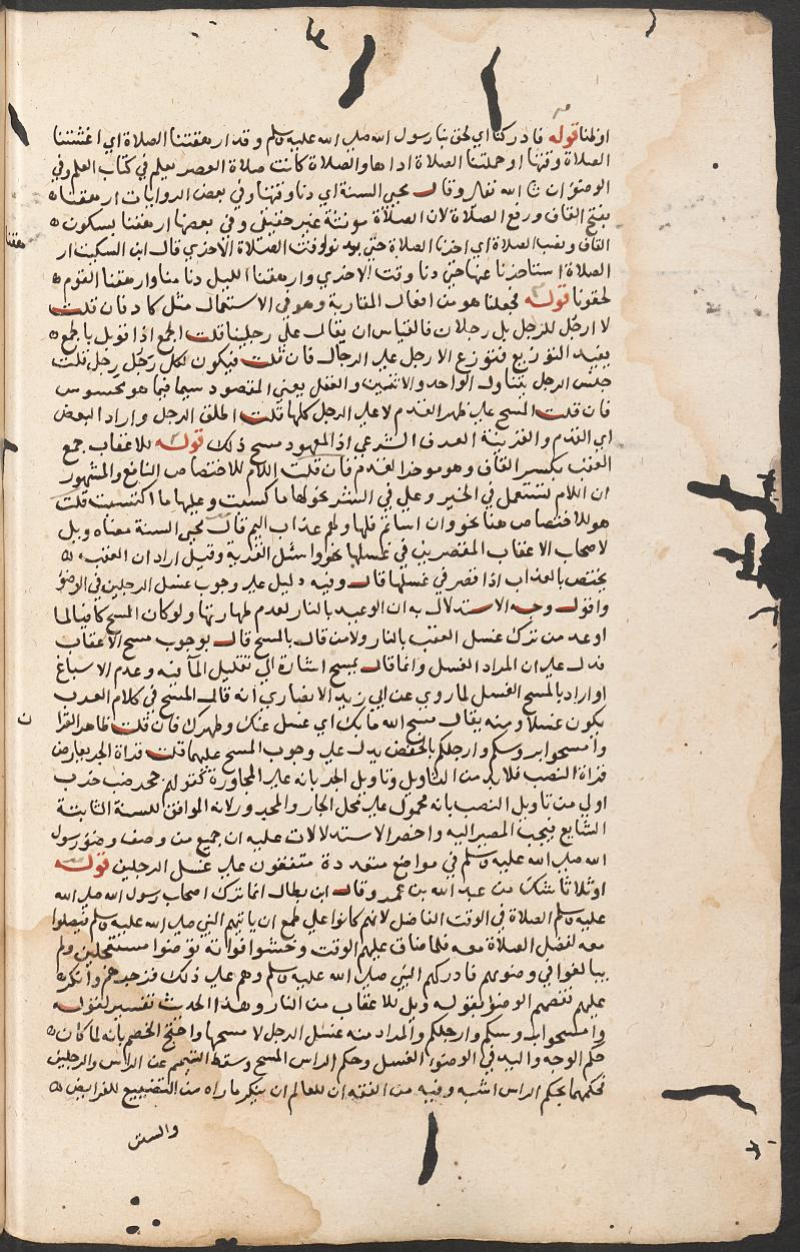 او ظنا قوله فادركنا اي لحق بنا رسول الله صلى الله عليه وسلم وقد ارهقتنا الصلاة اي اغشتنا
الصلاة وقتها او حملتنا الصلاة اداها والصلاة كانت صلاة العصر يعلم في كتاب العلم وفي
الوضوء ان شا الله تعالى وقال محيي السنة اي دنا وقتها وفي بعض الروايات ارهقتنا
بفتح القاف ورفع الصلاة لان الصلاة مونثة غير حقيقي وفي بعضها ارهقنا بسكون
القاف ونصب الصلاة اي اخرنا الصلاة حتى يدنو وقت الصلاة الاخري قال ابن السكيت ار
الصلاة استاخرنا عنها حتى دنا وقت الاخري وارهقنا الليل دنا منا وارهقنا القوم
لحقونا قوله فجعلنا هو من افعال المقاربة وهو في الاستعمال مثل كاد فان قلت
لا ارجل للرجل بل رجلان فالقياس ان يقال على رجلينا قلت الجمع اذا قوبل بالجمع
يفيد التوزيع فتوزع الارجل على الرجال فان قلت فيكون لكل رجل رجل قلت
جنس الرجل يتناول الواحد والاثنين والعقل يعين المقصود سيما فيما هو محسوس
فان قلت المسح على ظهر القدم لا على الرجل كلها قلت اطلق الرجل واراد البعض
اي القدم والقرينة العرف الشرعي اذ المعهود مسح ذلك قوله للاعقاب جمع
العقب بكسر القاف وهو موخر القدم فان قلت اللام للاختصاص النافع والمشهور
ان اللام تستعمل في الخير وعلى في الشر نحو لها ما كسبت وعليها ما اكتسبت قلت
هو للاختصاص هنا نحو وان اسأتم فلها ولهم عذاب اليم قال محيي السنة معناه ويل
لاصحاب الاعقاب المقصرين في غسلها نحو واسئل القرية وقيل اراد ان العقب
يختص بالعذاب اذا قصر في غسلها قال وفيه دليل على وجوب غسل الرجلين في الوضو
واقول وجه الاستدلال به ان الوعيد بالنار لعدم طهارتها ولو كان المسح كافيا لما
اوعد من ترك غسل العقب بالنار ولا من قال بالمسح قال بوجوب مسح الاعقاب
فدل على ان المراد الغسل وانما قال يمسح اشارة الى تقليل الما فيه وعدم الاسباغ
او اراد بالمسح الغسل لما روي عن ابي زيد الانصاري انه قال المسح في كلام العرب
يكون غسلا ومنه يقال مسح الله ما بك اي غسل عنك وطهرك فان قلت ظاهر القرا
وامسحوا بروسكم وارجلكم بالخفض يدل على وجوب المسح عليهما قلت قراة الجر يعارض
قراة النصب فلا بد من التاويل وتاويل الجر بانه على المجاورة كقولهم جحر ضب خرب
اولى من تاويل النصب بانه محمول على محل الجار والمجرور لانه الموافق للسنة الثابتة
الشايع فيجب المصير اليه واخصر الاستدلالات عليه ان جميع من وصف وضو رسول
الله صلى الله عليه وسلم في مواضع متعددة متفقون على غسل الرجلين قوله
او ثلاثا شك من عبد الله بن عمرو وقال ابن بطال انما ترك اصحاب رسول الله صلى الله
عليه وسلم الصلاة في الوقت الفاضل لانهم كانوا على طمع ان ياتيهم النبي صلى الله عليه وسلم فيصلوا
معه لفضل الصلاة معه فلما ضاق عليهم الوقت وخشوا فواته توضوا مستعجلين ولم
يبالغوا في وضوءهم فادركهم النبي صلى الله عليه وسلم وهم على ذلك فزجرهم وانكر
عليهم نقصهم الوضو بقوله ويل للاعقاب من النار وهذا الحديث تفسير لقوله
وامسحوا بروسكم وارجلكم والمراد منه غسل الرجل لا مسحها واحتج الخصم بانه لما كان
حكم الوجه واليد في الوضوء الغسل وحكم الراس المسح وسقط التيمم عن الراس والرجلين
فحكمهما بحكم الراس اشبه وفيه من الفقه ان للعالم ان ينكر ما راه من التضييع للفرايض
والسنن